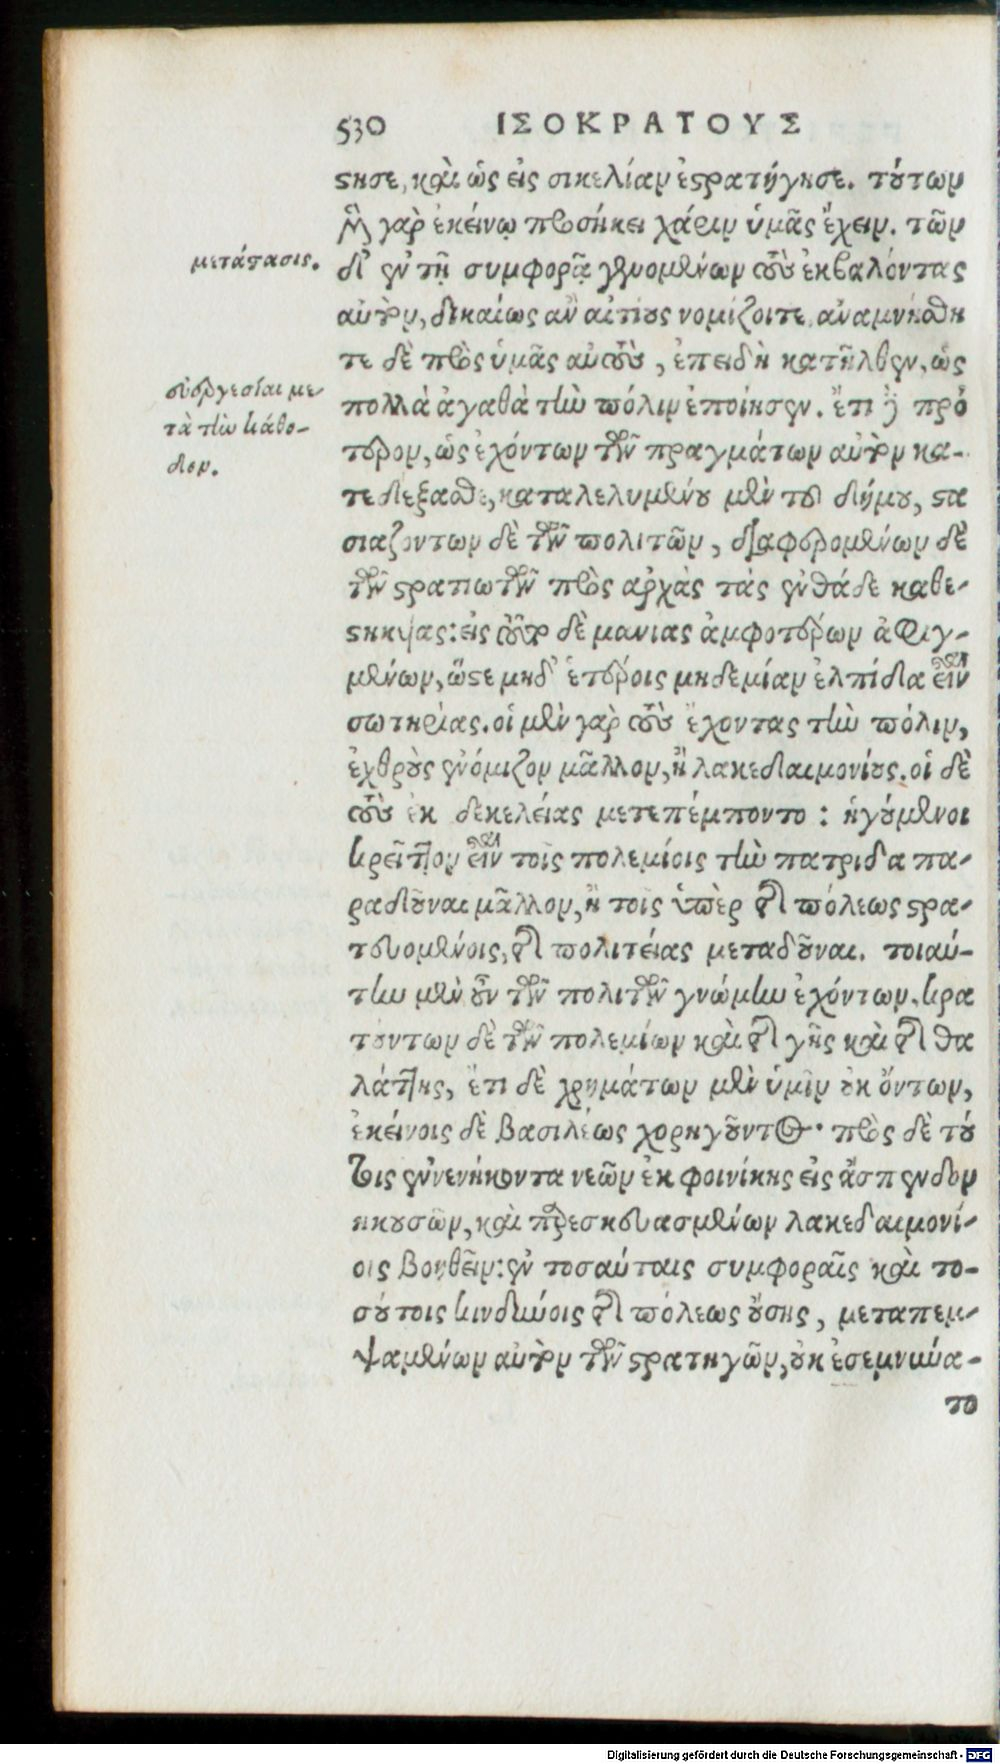 530 ΙΣΟΚΡΑΤΟΥΣ
στησε, καὶ ὡς εἰς σικελίαν ἐστρατήγησε. τούτων
μὲν γὰρ ἐκείνῳ προσήκει χάριν ὑμᾶς ἔχειν. τῶν
μετάστασις.
δ' ἐν τῇ συμφορᾷ γενομένων τοὺς ἐκβαλόντας
αὐτὸν, δικαίως ἂν αἰτίους νομίζοιτε. ἀναμνήσθη
τε δὲ πρὸς ὑμᾶς αὐτοὺς, ἐπειδὴ κατῆλθεν, ὡς
εὐεργεσίαι με-
τὰ τὴν κάθο-
δον.
πολλὰ ἀγαθὰ τὴν πόλιν ἐποίησεν. ἔτι δὲ πρό
τερον, ὡς ἐχόντων τῶν πραγμάτων αὐτὸν κα-
τεδέξασθε, καταλελυμένου μὲν τοῦ δήμου, στα
σιαζόντων δὲ τῶν πολιτῶν, διαφερομένων δὲ
τῶν στρατιωτῶν πρὸς ἀρχὰς τὰς ἐνθάδε καθε-
στηκυίας: εἰς τοῦτο δὲ μανίας ἀμφοτέρων ἀφιγ-
μένων, ὥστε μηδ' ἑτέροις μηδεμίαν ἐλπίδα εἶναι
σωτηρίας. οἱ μὲν γὰρ τοὺς ἔχοντας τὴν πόλιν,
ἐχθροὺς ἐνόμιζον μᾶλλον, ἢ λακεδαιμονίους. οἱ δὲ
τοὺς ἐκ δεκελείας μετεπέμποντο: ἡγούμενοι
κρεῖττον εἶναι τοῖς πολεμίοις τὴν πατρίδα πα-
ραδοῦναι μᾶλλον, ἢ τοῖς ὑπὲρ τῆς πόλεως στρα-
τευομένοις, τῆς πολιτείας μεταδοῦναι. τοιαύ-
την μὲν οὖν τῶν πολιτῶν γνώμην ἐχόντων, κρα
τούντων δὲ τῶν πολεμίων καὶ τῆς γῆς καὶ τῆς θα
λάττης, ἔτι δὲ χρημάτων μὲν ὑμῖν οὐκ ὄντων,
ἐκείνοις δὲ βασιλέως χορηγοῦντος· πρὸς δὲ τού
τοις ἐνενήκοντα νεῶν ἐκ φοινίκης εἰς ἄσπενδον
ἡκουσῶν, καὶ παρεσκευασμένων λακεδαιμονί-
οις βοηθεῖν: ἐν τοσαύταις συμφοραῖς καὶ το-
σούτοις κινδύνοις τῆς πόλεως οὔσης, μεταπεμ-
ψαμένων αὐτὸν τῶν στρατηγῶν, οὐκ ἐσεμνύνα-
το
Digitalisierung gefördert durch die Deutsche Forschungsgemeinschaft - DFG